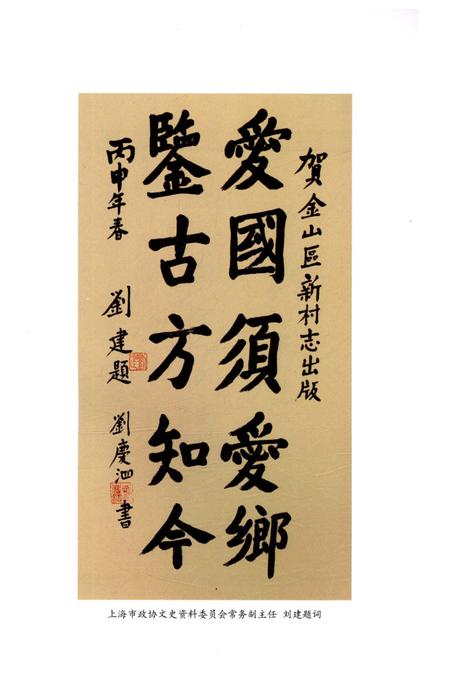 賀金山區新村志出版
愛國須愛鄉
鑒古方知今
丙申年春
劉建題
劉慶泗書
上海市政协文史资料委员会常务副主任 刘建题词